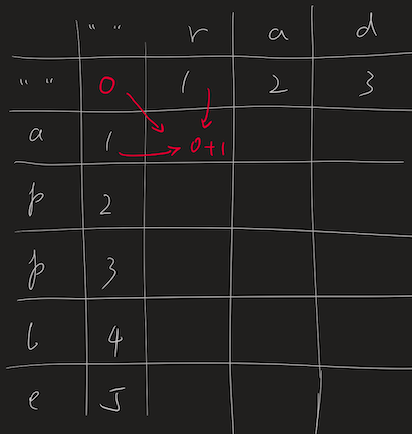 " " r a d
" " 0 1 2 3
a 1 0+1
p 2
p 3
l 4
e 5